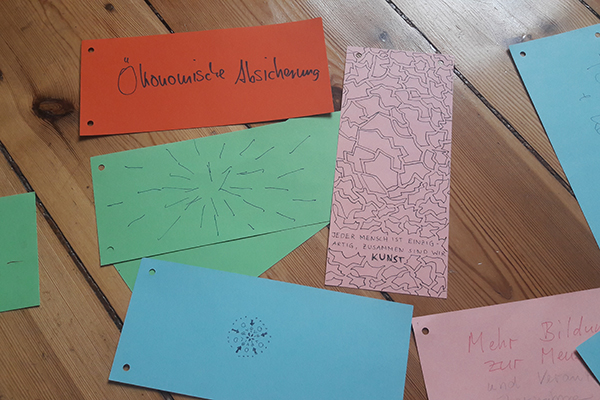 Ökonomische Absicherung
JEDER MENSCH IST EINZIG-
ARTIG, ZUSAMMEN SIND WIR
KUNST.
Mehr Bildun
zur Men
und